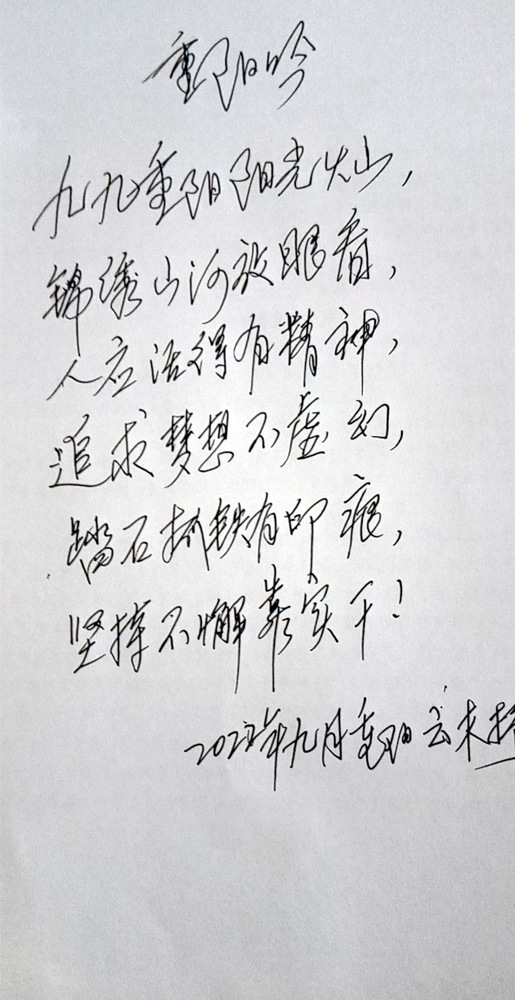 重阳吟
九九重阳阳光火山，
锦绣山河放眼看，
人应活得有精神，
追求梦想不虚幻，
踏石抓铁有印痕，
坚持不懈靠实干！
九月重阳